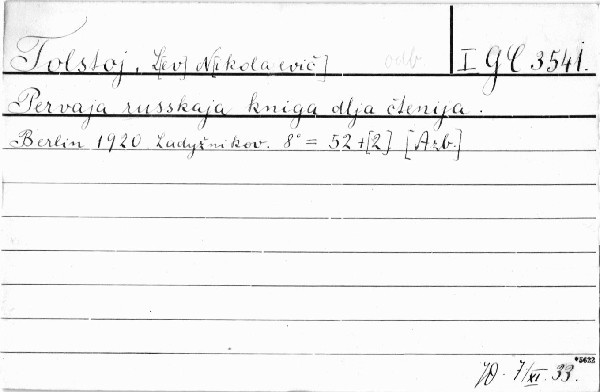 Tolstoj, L[ev] N[ikolaevič] odb. I GC 3541.
Pervaja russkaja kniga dlja čtenija.
Berlin 1920 Ladyžnikov. 8° = 52 + [2] [Azb.]
*5622
7/XI. 33.